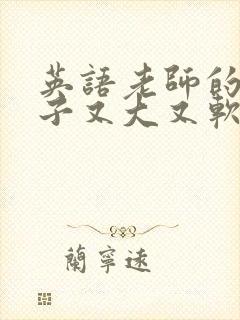 英語老師的
子又大又軟
蘭寧遠